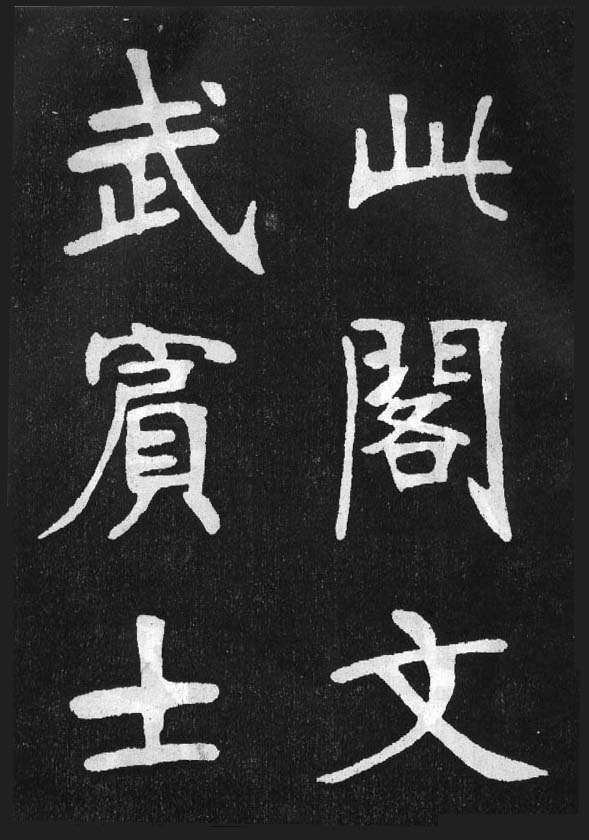 此閣文
武賓士